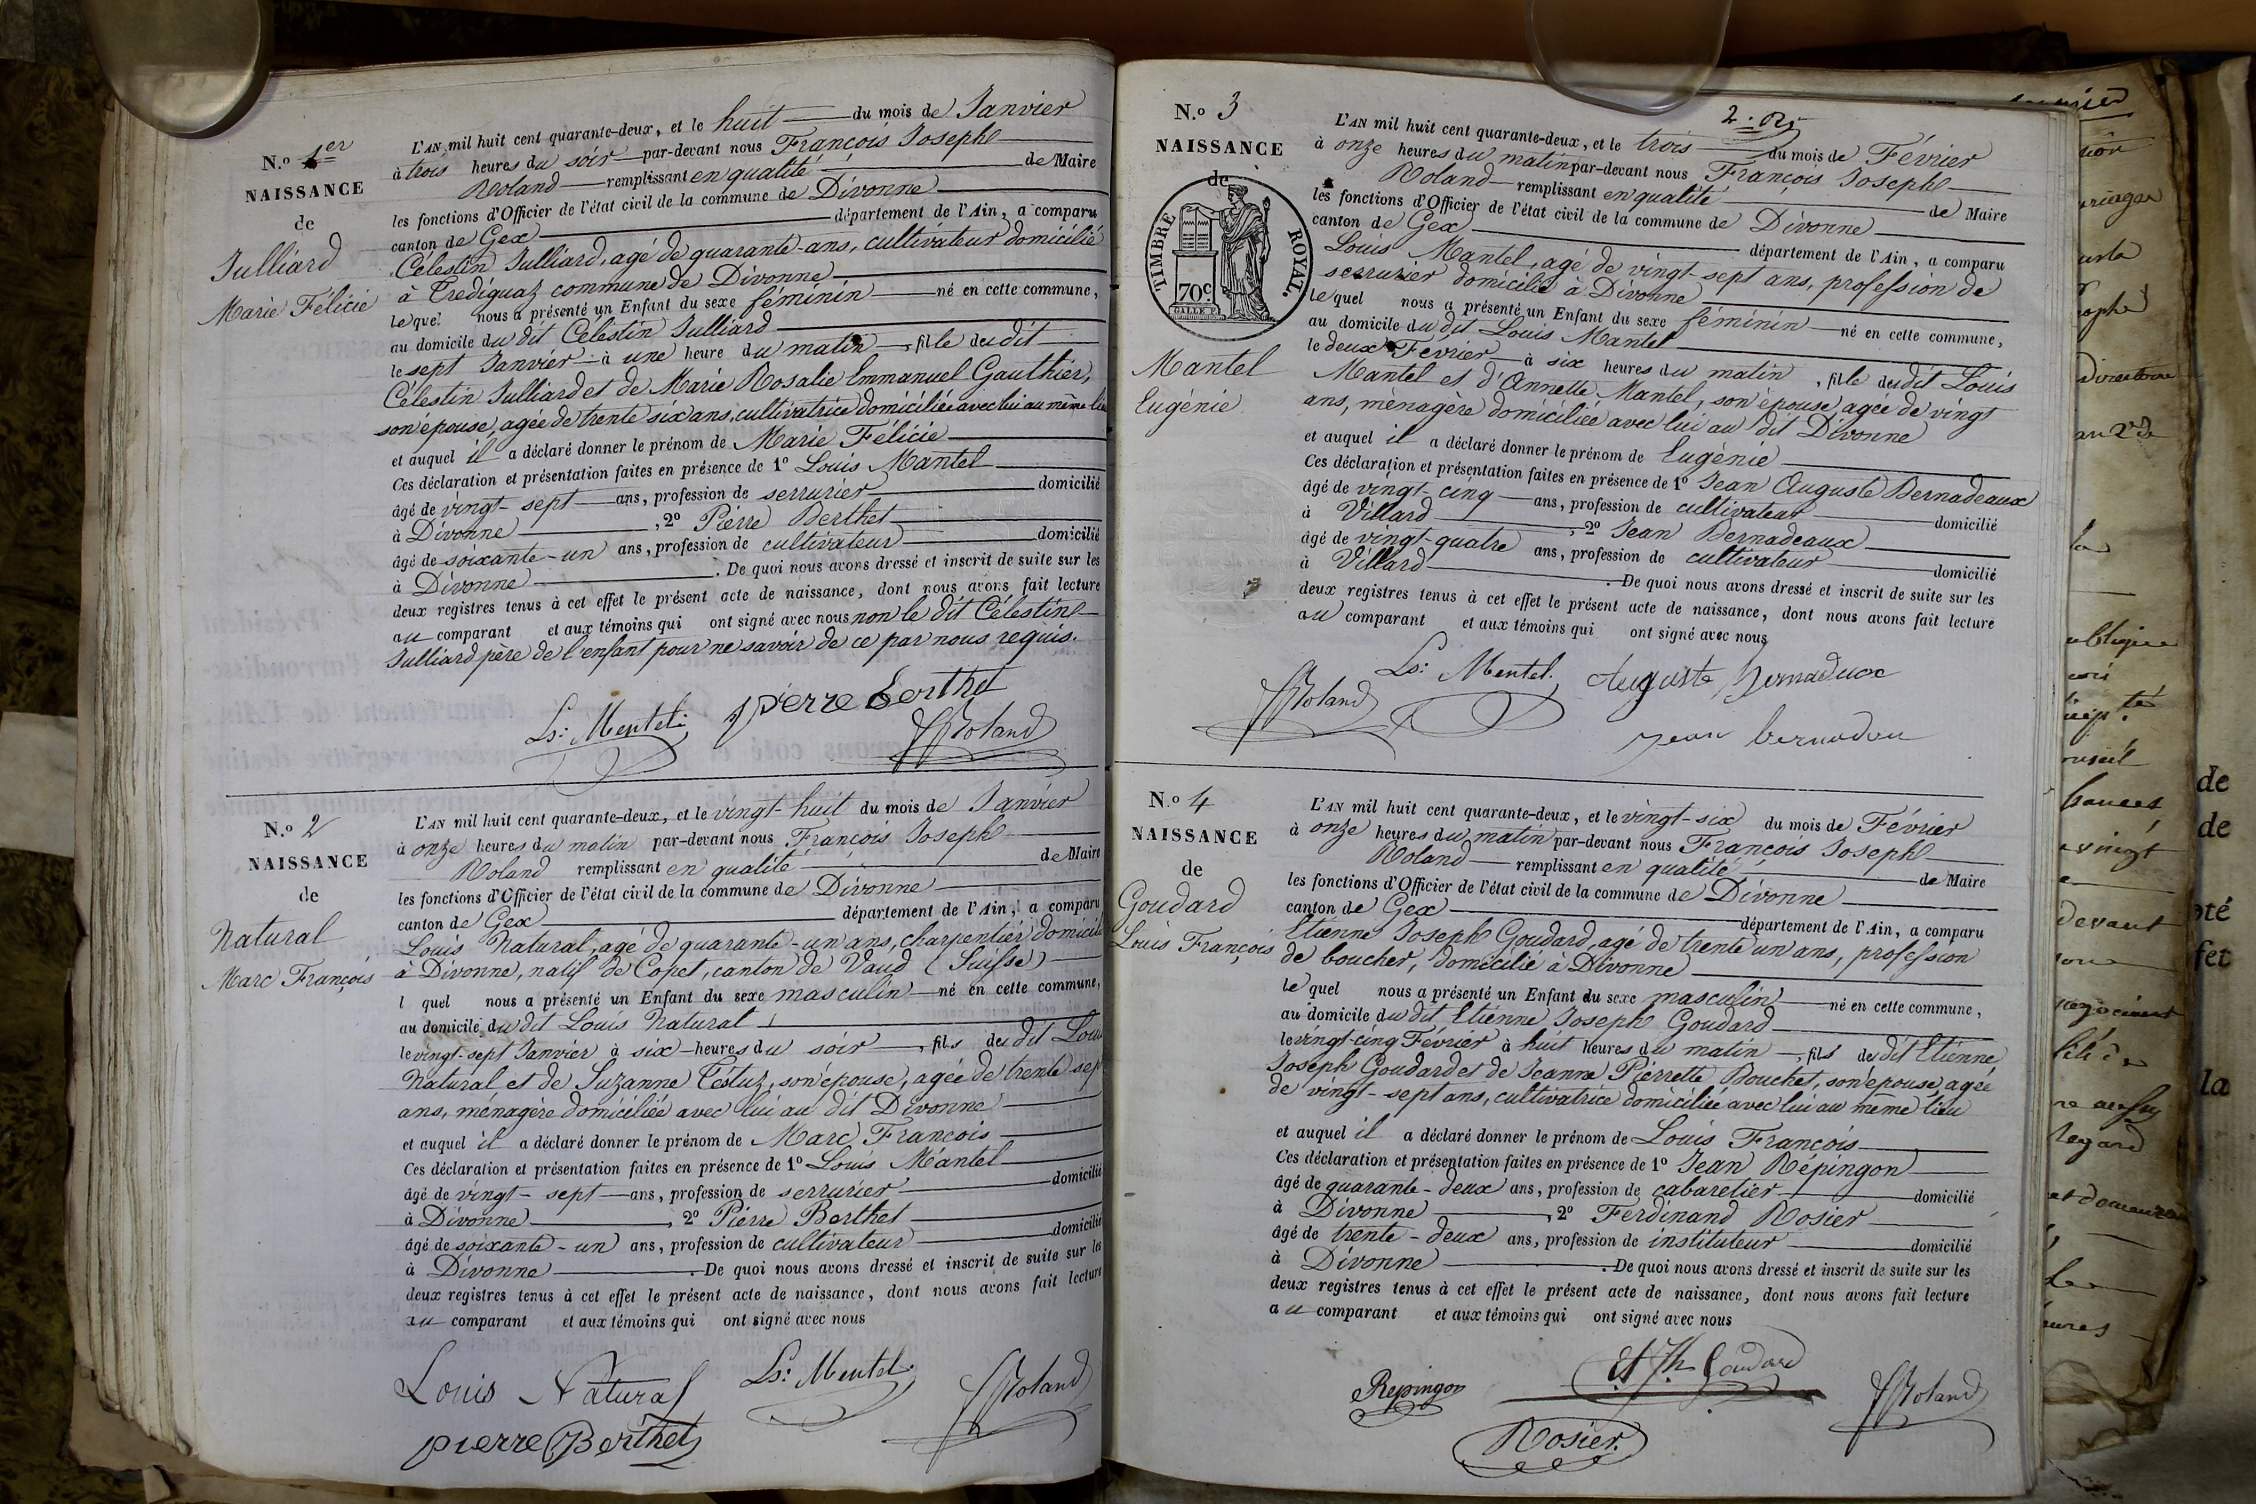 N.o 1er
NAISSANCE
de
Julliard
Marie Félicie
L'AN mil huit cent quarante-deux, et le huit du mois de Janvier
à trois heures du soir par-devant nous François Joseph
Roland remplissant en qualité de Maire
les fonctions d'Officier de l'état civil de la commune de Divonne
canton de Gex département de l'Ain, a comparu
Célestin Julliard, agé de quarante-ans, cultivateur domicilié
à Trediguaz commune de Divonne
lequel nous a présenté un Enfant du sexe féminin né en cette commune,
au domicile du dit Célestin Julliard
le sept Janvier à une heure du matin, fille du dit
Célestin Julliard et de Marie Rosalie Emmanuel Gauthier,
son épouse, agée de trente six ans, cultivatrice domiciliée avec lui au même lieu
et auquel il a déclaré donner le prénom de Marie Félicie
Ces déclaration et présentation faites en présence de 1o Louis Mantel
âgé de vingt-sept ans, profession de serrurier domicilié
à Divonne, 2o Pierre Berthet
âgé de soixante-un ans, profession de cultivateur domicilié
à Divonne. De quoi nous avons dressé et inscrit de suite sur les
deux registres tenus à cet effet le présent acte de naissance, dont nous avons fait lecture
au comparant et aux témoins qui ont signé avec nous non le dit Célestin
Julliard père de l'enfant pour ne savoir de ce par nous requis.
Ls: Mentel Pierre Berthet
FRoland
N.o 2
NAISSANCE
de
Natural
Marc François
L'AN mil huit cent quarante-deux, et le vingt-huit du mois de Janvier
à onze heures du matin par-devant nous François Joseph
Roland remplissant en qualité de Maire
les fonctions d'Officier de l'état civil de la commune de Divonne
canton de Gex département de l'Ain, a comparu
Louis Natural, agé de quarante-un ans, charpentier domicilié
à Divonne, natif de Copet, canton de Vaud (Suisse)
l quel nous a présenté un Enfant du sexe masculin né en cette commune,
au domicile du dit Louis Natural
le vingt-sept Janvier à six heures du soir, fils du dit Louis
Natural et de Suzanne Testuz, son épouse, agée de trente sept
ans, ménagère domiciliée avec lui au dit Divonne
et auquel il a déclaré donner le prénom de Marc François
Ces déclaration et présentation faites en présence de 1o Louis Mantel
âgé de vingt-sept ans, profession de serrurier domicilié
à Divonne, 2o Pierre Berthet
âgé de soixante-un ans, profession de cultivateur domicilié
à Divonne. De quoi nous avons dressé et inscrit de suite sur les
deux registres tenus à cet effet le présent acte de naissance, dont nous avons fait lecture
au comparant et aux témoins qui ont signé avec nous
Louis Natural Ls: Mentel FRoland
Pierre Berthet
N.o 3
NAISSANCE
de
TIMBRE ROYAL.
70c
Mantel
Eugénie
L'AN mil huit cent quarante-deux, et le trois du mois de Février
à onze heures du matin par-devant nous François Joseph
Roland remplissant en qualité de Maire
les fonctions d'Officier de l'état civil de la commune de Divonne
canton de Gex département de l'Ain, a comparu
Louis Mantel, agé de vingt-sept ans, profession de
serrurier domicilié à Divonne
lequel nous a présenté un Enfant du sexe féminin né en cette commune,
au domicile du dit Louis Mantel
le deux Février à six heures du matin, fille du dit Louis
Mantel et d'Annette Mantel, son épouse, agée de vingt
ans, ménagère domiciliée avec lui au dit Divonne
et auquel il a déclaré donner le prénom de Eugénie
Ces déclaration et présentation faites en présence de 1o Jean Auguste Bernadeaux
âgé de vingt-cinq ans, profession de cultivateur domicilié
à Villard, 2o Jean Bernadeaux
âgé de vingt-quatre ans, profession de cultivateur domicilié
à Villard. De quoi nous avons dressé et inscrit de suite sur les
deux registres tenus à cet effet le présent acte de naissance, dont nous avons fait lecture
au comparant et aux témoins qui ont signé avec nous
Ls: Mentel. Auguste Bernaduox
FRoland
Jean bernadou
N.o 4
NAISSANCE
de
Goudard
Louis François
L'AN mil huit cent quarante-deux, et le vingt-six du mois de Février
à onze heures du matin par-devant nous François Joseph
Roland remplissant en qualité de Maire
les fonctions d'Officier de l'état civil de la commune de Divonne
canton de Gex département de l'Ain, a comparu
Etienne Joseph Goudard, agé de trente un ans, profession
de boucher, domicilié à Divonne
lequel nous a présenté un Enfant du sexe masculin né en cette commune,
au domicile du dit Etienne Joseph Goudard
le vingt-cinq Février à huit heures du matin, fils du dit Etienne
Joseph Goudard et de Jeanne Pierrette Bouchet, son épouse, agée
de vingt-sept ans, cultivatrice domiciliée avec lui au même lieu
et auquel il a déclaré donner le prénom de Louis François
Ces déclaration et présentation faites en présence de 1o Jean Répingon
âgé de quarante-deux ans, profession de cabaretier domicilié
à Divonne, 2o Ferdinand Rosier
âgé de trente-deux ans, profession de instituteur domicilié
à Divonne. De quoi nous avons dressé et inscrit de suite sur les
deux registres tenus à cet effet le présent acte de naissance, dont nous avons fait lecture
au comparant et aux témoins qui ont signé avec nous
Repingon Et Jh Goudard FRoland
Rosier.